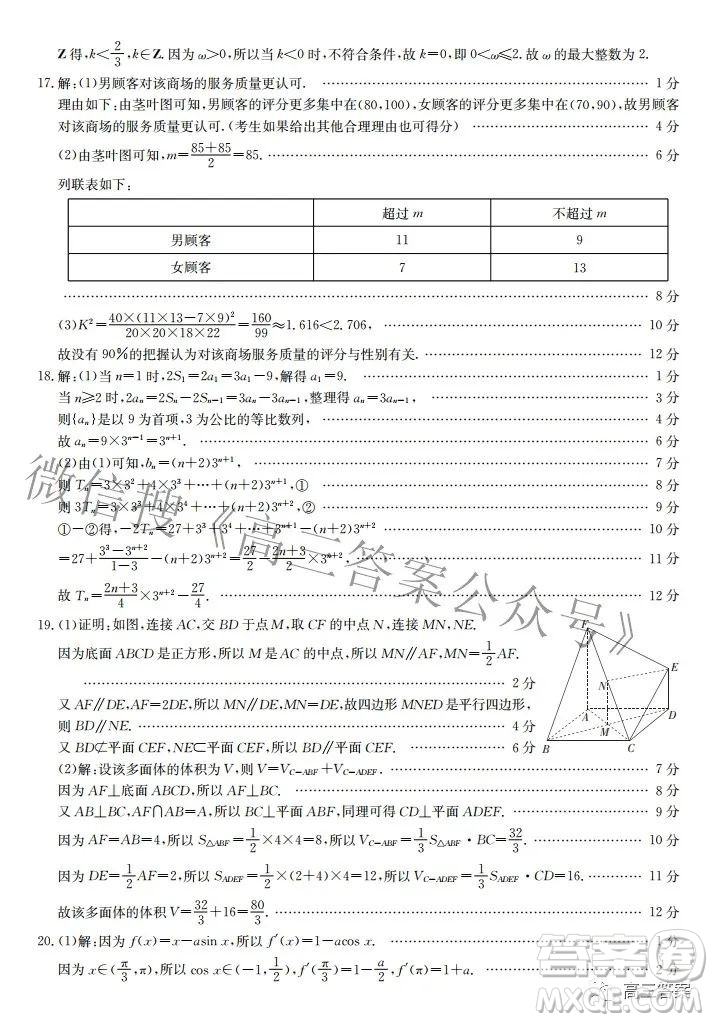 Z得,k<2/3,k∈Z.因为ω>0,所以当k<0时,不符合条件,故k=0,即0<ω≤2.故ω的最大整数为2.
17.解:(1)男顾客对该商场的服务质量更认可. …… 1分
理由如下:由茎叶图可知,男顾客的评分更多集中在(80,100),女顾客的评分更多集中在(70,90),故男顾客
对该商场的服务质量更认可.(考生如果给出其他合理理由也可得分) …… 4分
(2)由茎叶图可知,m=(85+85)/2=85. …… 6分
列联表如下:
超过m 不超过m
男顾客 11 9
女顾客 7 13
…… 8分
(3)K²=40×(11×13-7×9)²/(20×20×18×22)=160/99≈1.616<2.706, …… 10分
故没有90%的把握认为对该商场服务质量的评分与性别有关. …… 12分
18.解:(1)当n=1时,2S₁=2a₁=3a₁-9,解得a₁=9. …… 1分
当n≥2时,2aₙ=2Sₙ-2Sₙ₋₁=3aₙ-3aₙ₋₁,整理得aₙ=3aₙ₋₁, …… 3分
则{aₙ}是以9为首项,3为公比的等比数列, …… 4分
故aₙ=9×3ⁿ⁻¹=3ⁿ⁺¹. …… 6分
(2)由(1)可知,bₙ=(n+2)3ⁿ⁺¹, …… 7分
则Tₙ=3×3²+4×3³+…+(n+2)3ⁿ⁺¹,① …… 8分
则3Tₙ=3×3³+4×3⁴+…+(n+2)3ⁿ⁺²,② …… 9分
①-②得,-2Tₙ=27+3³+3⁴+…+3ⁿ⁺¹-(n+2)3ⁿ⁺² …… 10分
=27+(3³-3ⁿ⁺²)/(1-3)-(n+2)3ⁿ⁺²=27/2-(2n+3)/2×3ⁿ⁺², …… 11分
故Tₙ=(2n+3)/4×3ⁿ⁺²-27/4. …… 12分
19.(1)证明:如图,连接AC,交BD于点M,取CF的中点N,连接MN,NE.
因为底面ABCD是正方形,所以M是AC的中点,所以MN∥AF,MN=1/2AF.
…… 2分
又AF∥DE,AF=2DE,所以MN∥DE,MN=DE,故四边形MNED是平行四边形,
则BD∥NE. …… 4分
又BD⊄平面CEF,NE⊂平面CEF,所以BD∥平面CEF. …… 6分
F
E
N
A
D
M
B
C
(2)解:设该多面体的体积为V,则V=V_C-ABF+V_C-ADEF. …… 7分
因为AF⊥底面ABCD,所以AF⊥BC. …… 8分
又AB⊥BC,AF∩AB=A,所以BC⊥平面ABF,同理可得CD⊥平面ADEF. …… 9分
因为AF=AB=4,所以S△ABF=1/2×4×4=8,所以V_C-ABF=1/3S△ABF·BC=32/3. …… 10分
因为DE=1/2AF=2,所以S_ADEF=1/2×(2+4)×4=12,所以V_C-ADEF=1/3S_ADEF·CD=16. …… 11分
故该多面体的体积V=32/3+16=80/3. …… 12分
20.(1)解:因为f(x)=x-asin x,所以f′(x)=1-acos x. …… 1分
因为x∈(π/3,π),所以cos x∈(-1,1/2),所以1-a/2<f′(x)<1+a. …… 2分
微信搜《高三答案公众号》
高三答案
答案圈
MXQE.COM